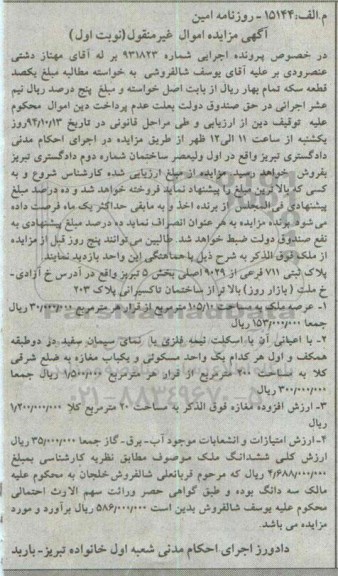 م.الف:۱۵۱۴۴ - روزنامه امین
آگهی مزایده اموال غیرمنقول(نوبت اول)
در خصوص پرونده اجرایی شماره ۹۳۱۸۲۳ بر له آقای مهناز دشتی
عنصرودی بر علیه آقای یوسف شالفروشی به خواسته مطالبه مبلغ یکصد
قطعه سکه تمام بهار ریال از بابت اصل خواسته و مبلغ پنج درصد ریال نیم
عشر اجرائی در حق صندوق دولت بعلت عدم پرداخت دین اموال محکوم
علیه توقیف دین از ارزیابی و طی مراحل قانونی در تاریخ ۹۴/۱۰/۱۳روز
یکشنبه از ساعت ۱۱ الی۱۲ ظهر از طریق مزایده در اجرای احکام مدنی
دادگستری تبریز واقع در اول ولیعصر ساختمان شماره دوم دادگستری تبریز
بفروش خواهد رسید. مزایده از مبلغ ارزیابی شده کارشناس شروع و به
کسی که بالاترین مبلغ را پیشنهاد نماید فروخته خواهد شد و ده درصد مبلغ
پیشنهادی فی‌المجلس از برنده اخذ و به مابقی حداکثر یک ماه فرصت داده
می‌شود برنده مزایده به هر عنوان انصراف نماید ده درصد مبلغ پیشنهادی به
نفع صندوق دولت ضبط خواهد شد. طالبین می‌توانند پنج روز قبل از مزایده
از ملک فوق الذکر به شرح ذیل با هماهنگی این واحد بازدید نمایند.
پلاک ثبتی ۷۱۱ فرعی از ۹۰۲۹ اصلی بخش ۵ تبریز واقع در آدرس خ آزادی-
خ ملت ( بازار روز) بالاتر از ساختمان تاکسیرانی پلاک ۲۰۳
۱- عرصه ملک به مساحت ۱۰۵/۱۰ مترمربع از قرار هر مترمربع ۳۰/۰۰۰/۰۰۰
جمعا ۱۵۳/۰۰۰/۰۰۰ ریال
۲- با اعیانی آن با اسکلت نیمه فلزی با نمای سیمان سفید در دوطبقه
همکف و اول هر کدام یک واحد مسکونی و یکباب مغازه به ضلع شرقی
کلا به مساحت ۲۰۰ مترمربع از قرار هر مترمربع ۱/۵۰۰/۰۰۰ ریال جمعا
۳۰۰/۰۰۰/۰۰۰ ریال
۳- ارزش افزوده مغازه فوق الذکر به مساحت ۲۰ مترمربع کلا ۱/۲۰۰/۰۰۰/۰۰۰
ریال
۴-ارزش امتیازات و انشعابات موجود آب- برق- گاز جمعا ۳۵/۰۰۰/۰۰۰ ریال
ارزش کلی ششدانگ ملک موصوف مطابق نظریه کارشناسی بمبلغ
۴/۶۸۸/۰۰۰/۰۰۰ ریال که مرحوم قربانعلی شالفروش‌خلجان به محکوم علیه
مالک سه دانگ بوده و طبق گواهی حصر وراثت سهم الارث احتمالی
محکوم علیه یوسف شالفروش بدین است ۵۸۶/۰۰۰/۰۰۰ ریال برآورد و مورد
مزایده می باشد.
دادورز اجرای احکام مدنی شعبه اول خانواده تبریز- باربد
ParsNamadData
۰۲۱-۸۸۳۴۹۶۷۰-۵